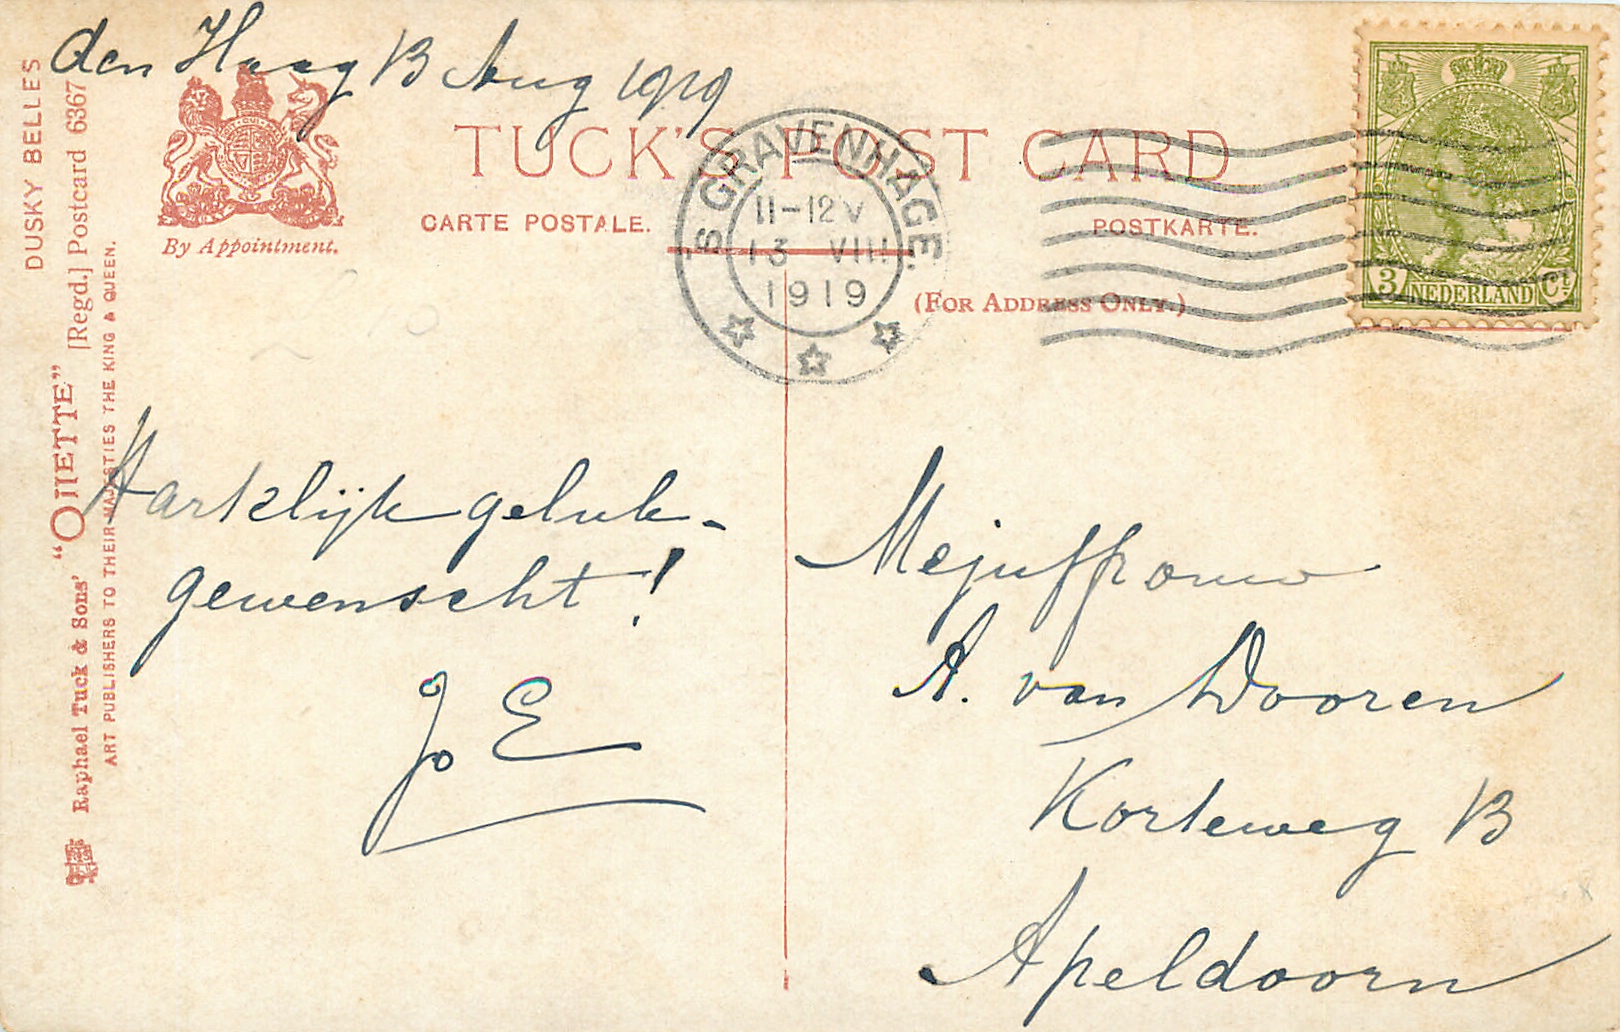 den Haag 13 Aug 1919
TUCK'S POST CARD
CARTE POSTALE.
POSTKARTE.
(FOR ADDRESS ONLY.)
By Appointment.
'S GRAVENHAGE.
11-12 V
13 VIII
1919
3 NEDERLAND Ct
DUSKY BELLES
Raphael Tuck & Sons' "OILETTE" [Regd.] Postcard 6367
ART PUBLISHERS TO THEIR MAJESTIES THE KING & QUEEN.
Hartelijk geluk-
gewenscht!
Jo E
Mejuffrouw
A. van Dooren
Korteweg 13
Apeldoorn